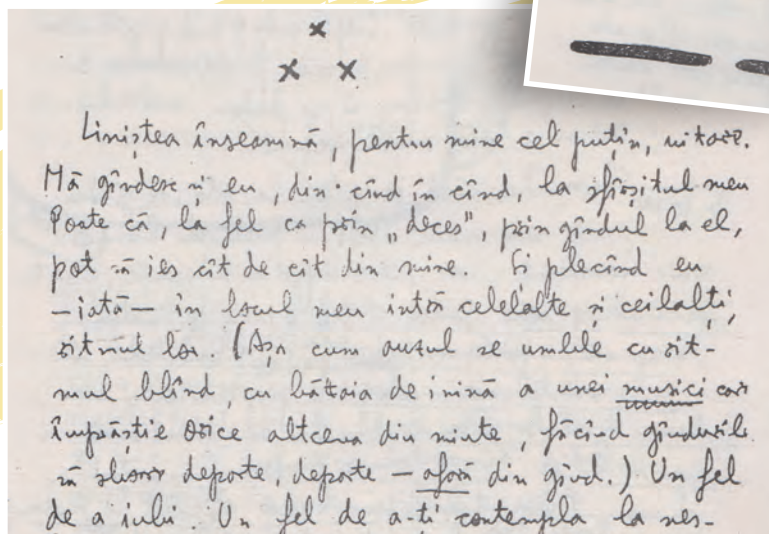 x
x x
Liniștea înseamnă, pentru mine cel puțin, uitare.
Mă gîndesc și eu, din cînd în cînd, la sfîrșitul meu
Poate că, la fel ca prin „deces", prin gîndul la el,
pot să ies cît de cît din mine. Și plecînd eu
— iată — în locul meu intră celelalte și ceilalți,
ritmul lor. (Așa cum auzul se umple cu rit-
mul blînd, cu bătaia de inimă a unei muzici care
împrăștie orice altceva din minte, făcînd gîndurile
să zboare departe, departe — afară din gînd.) Un fel
de a iubi. Un fel de a-ți contempla la nes-